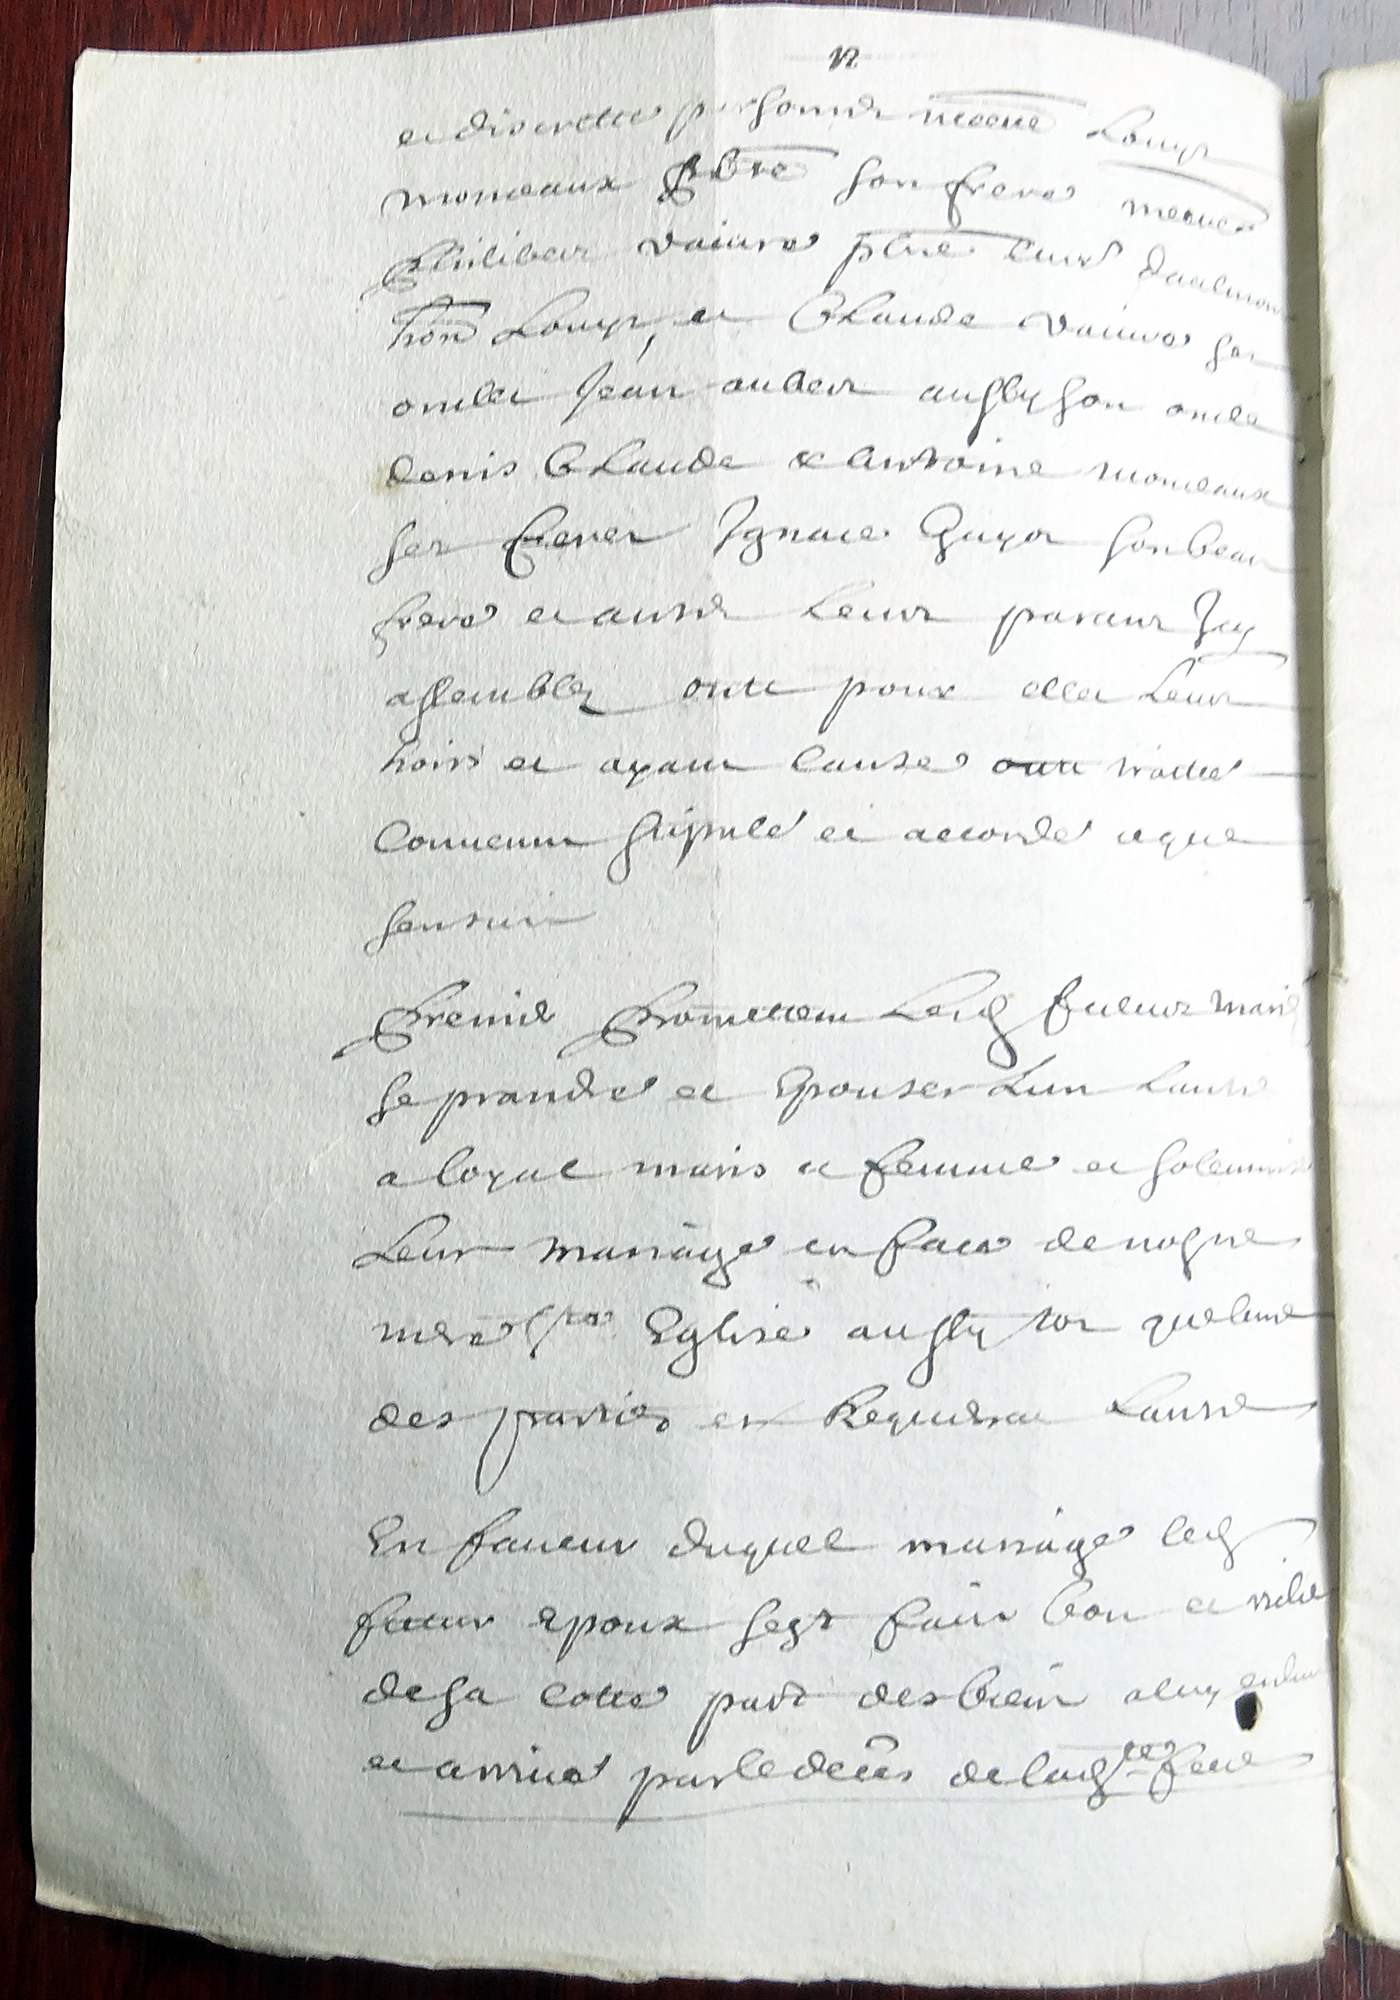 et discrette personne messe Louys
monceaux pbre son frere messes
Philibert Vaivre pbre curé daulmon
Louys, et Claude Vaivre ses
oncles Jean aubert aussy son oncle
denis Claude & Antoine monceaux
ses freres Ignace Guyot son beau
frere et autre leurs parans Icy
assemblez ont pour elles Leurs
hoirs et ayant cause ont traitté
Convenu stipulé et accordé ce que
sensuit
Premie Promettent Lesd futurs mariés
se prandre et Epouser Lun Lautre
a loyal maris et femme et solemnise
Leur mariage en face de nostre
mere ste Eglise aussy tot que lune
des parties en Requerra Lautre
En faveur duquel mariage led
futur epoux sest fait bon et riche
de sa cotte part des biens a luy
et arrivé par le deces de lad feue